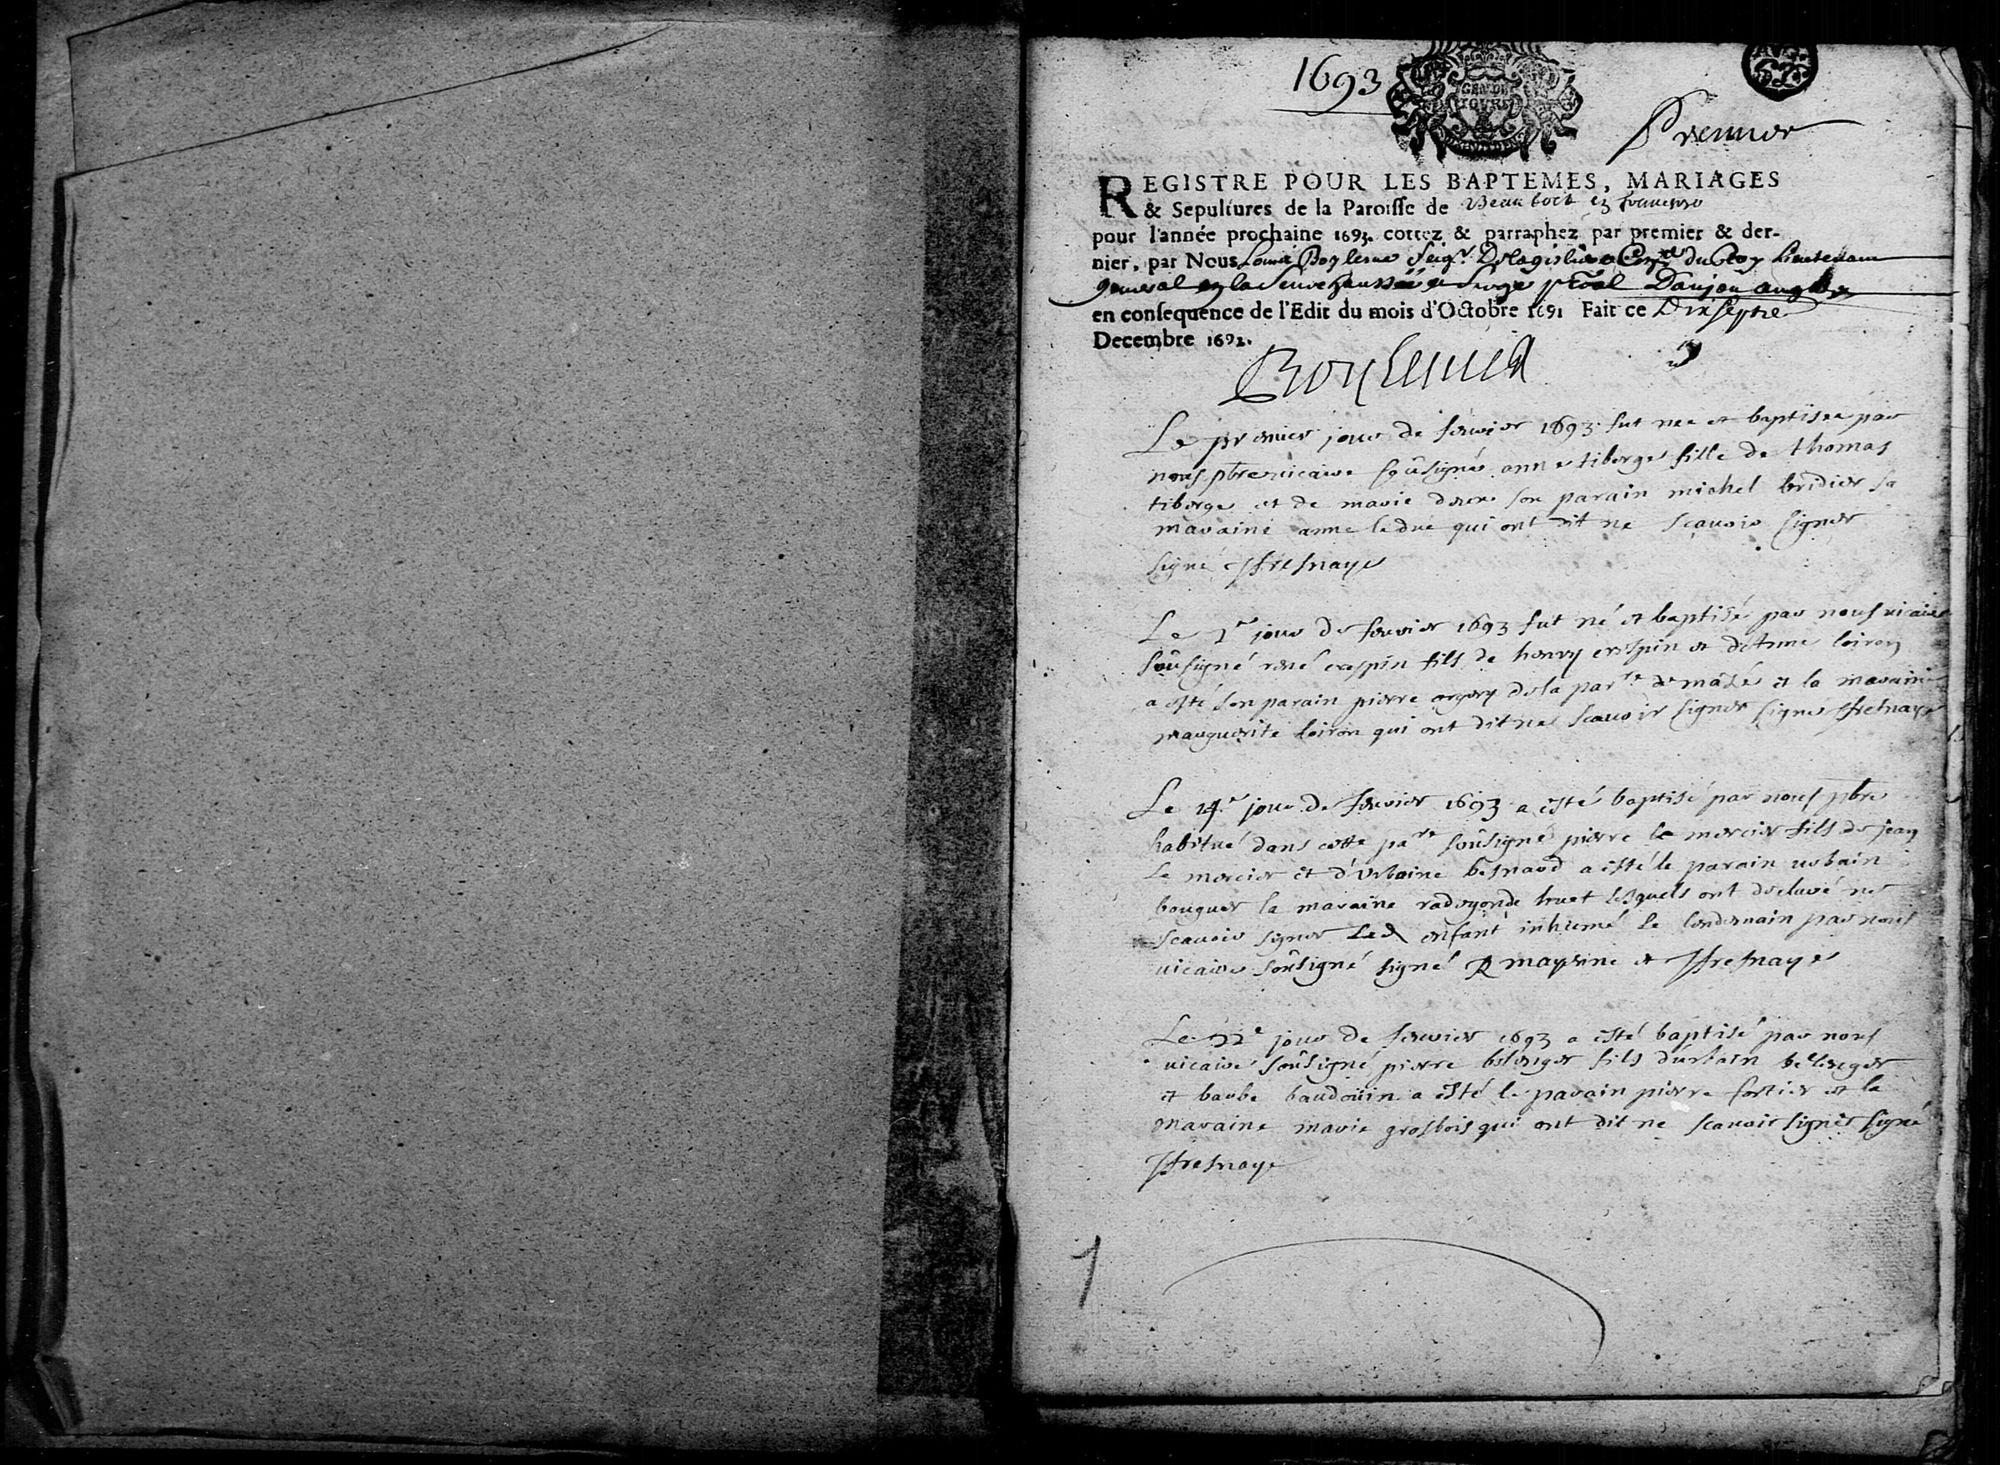 1693
GEN DE
TOURS
Premier
REGISTRE POUR LES BAPTEMES, MARIAGES
& Sepultures de la Paroisse de Beaufort
pour l'année prochaine 1693. cottez & parraphez par premier & der-
nier, par Nous Louis Boylesve Seigr. du Roy Lieutenant
general en la Senechaussée et Siege Danjou angers
en consequence de l'Edit du mois d'Octobre 1691 Fait ce Dixseptie
Decembre 1692.
Boylesve
Le premier jour de feuvier 1693 fut nee et baptisee par
nous pbre vicaire soûsigné anne tiberge fille de thomas
tiberge et de marie son parain michel bridier sa
maraine anne leduc qui ont dit ne sçavoir signer
signé Jfresnaye
Le jour de feuvier 1693 fut né et baptisé par nous vicaire
soûsigné rené crespin fils de henry crespin et loiron
a esté son parain pierre de la parsse de mazé et la maraine
marguerite loiron qui ont dit ne scauoir signer signé Jfresnaye
Le 14e jour de feuvier 1693 a esté baptisé par nous pbre
habitué dans cette psse soûsigné pierre le mercier fils de jean
le mercier et d'urbaine besnard a esté le parain urbain
bouguer la maraine radegonde huet lesquels ont declaré ne
scauoir signer Led enfant inhumé le lendemain par nous
vicaire soûsigné signé R mayrine et Jfresnaye
Le 22e jour de feuvier 1693 a esté baptisé par nous
vicaire soûsigné pierre belenger fils durbain bellenger
et barbe baudouin a esté le parain pierre fortier et la
maraine marie grosbois qui ont dit ne scauoir signer signé
Jfresnaye
1